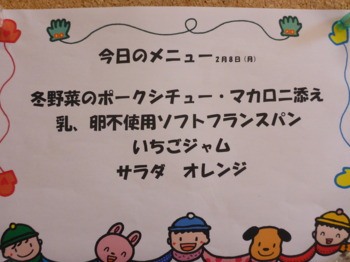 今日のメニュー 2月8日(月)
冬野菜のポークシチュー・マカロニ添え
乳、卵不使用ソフトフランスパン
いちごジャム
サラダ オレンジ